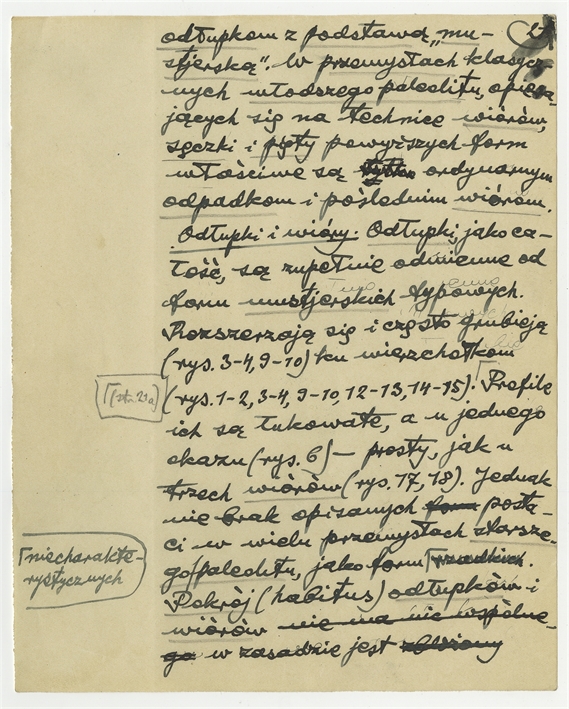 odłupkom z podstawą „mu-
stjerską”. W przemysłach klasycz-
nych młodszego paleolitu, opiera-
jących się na technice wiórów,
sęczki i pięty powyższych form
właściwe są ordynarnym
odpadkom i poślednim wiórom.
Odłupki i wióry. Odłupki, jako ca-
łość, są zupełnie odmienne od
form mustjerskich typowych.
Rozszerzają się i często grubieją
(rys. 3-4, 9-10) ku wierzchołkom
(rys. 1-2, 3-4, 9-10, 12-13, 14-15). Profile
[(str. 21a)]
ich są łukowate, a u jednego
okazu (rys. 6) — prosty, jak u
trzech wiórów (rys. 17, 18). Jednak
nie brak opisanych form posta-
ci w wielu przemysłach starsze-
go paleolitu, jako form rzadkich.
niecharakte-
rystycznych
Pokrój (habitus) odłupków i
wiórów nie ma nic wspólne-
go w zasadzie jest